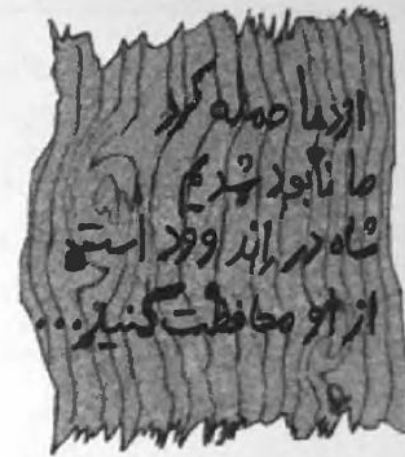 اژدها حمله کرد
ما نابود شدیم
شاه در راند وود است
از او محافظت کنید...